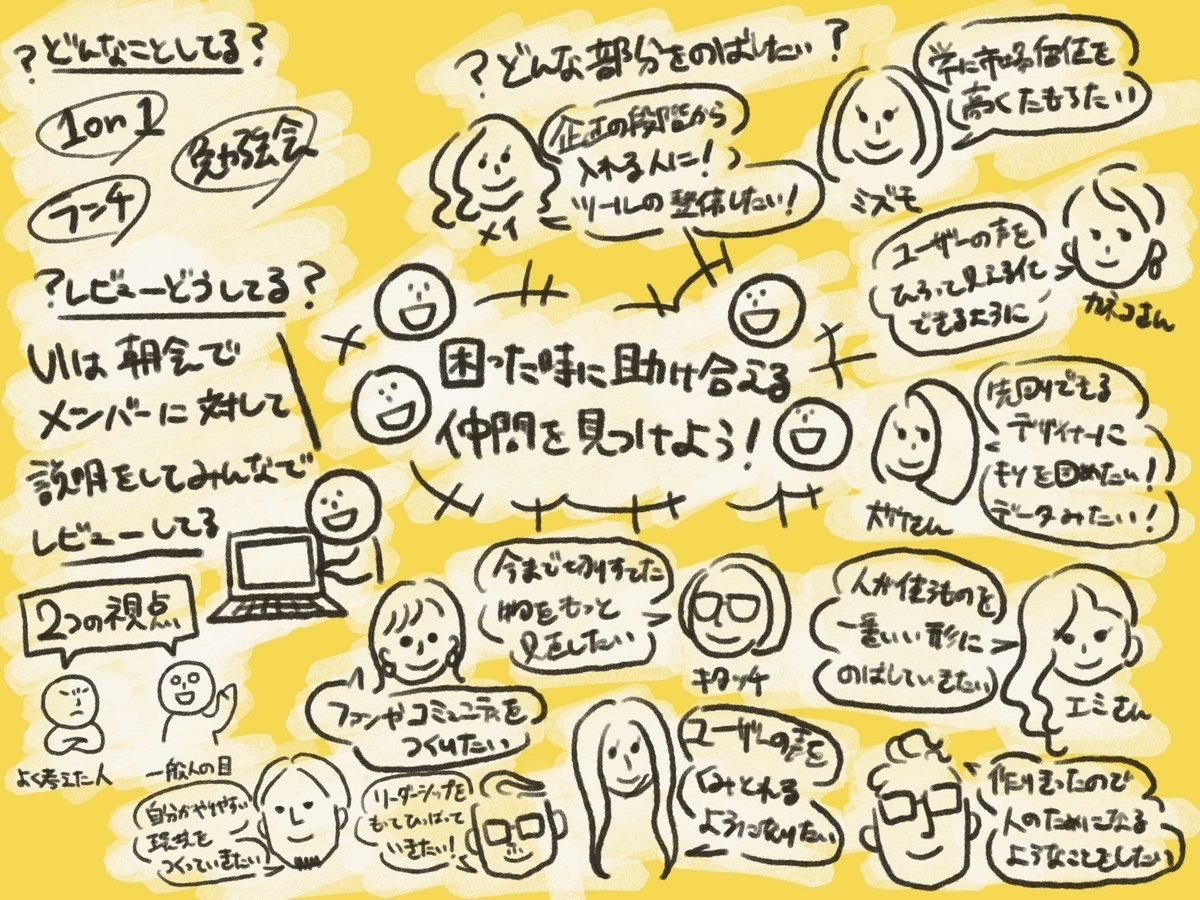 ？どんなことしてる？
1on1
勉強会
ランチ
？レビューどうしてる？
UIは朝会で
メンバーに対して
説明をしてみんなで
レビューしてる
2つの視点
よく考えた人
一般人の目
？どんな部分をのばしたい？
企画の段階から
入れる人に！
ツールの整備したい！
メイ
常に市場価値を
高くたもちたい
ミズモ
ユーザーの声を
ひろって見える化
できるように
カネコさん
困った時に助け合える
仲間を見つけよう！
先回りできる
デザイナーに
キソを固めたい！
データみたい！
さん
今まで切りすてた
をもっと
見直したい
キタッチ
人が使うものを
一番いい形に
のばしていきたい
エミさん
ファンやコミュニティを
つくりたい
自分がやりやすい
環境を
つくっていきたい
リーダーシップを
もってひっぱって
いきたい！
ユーザーの声を
くみとれる
ようになりたい
作りきったので
人のためになる
ようなことをしたい